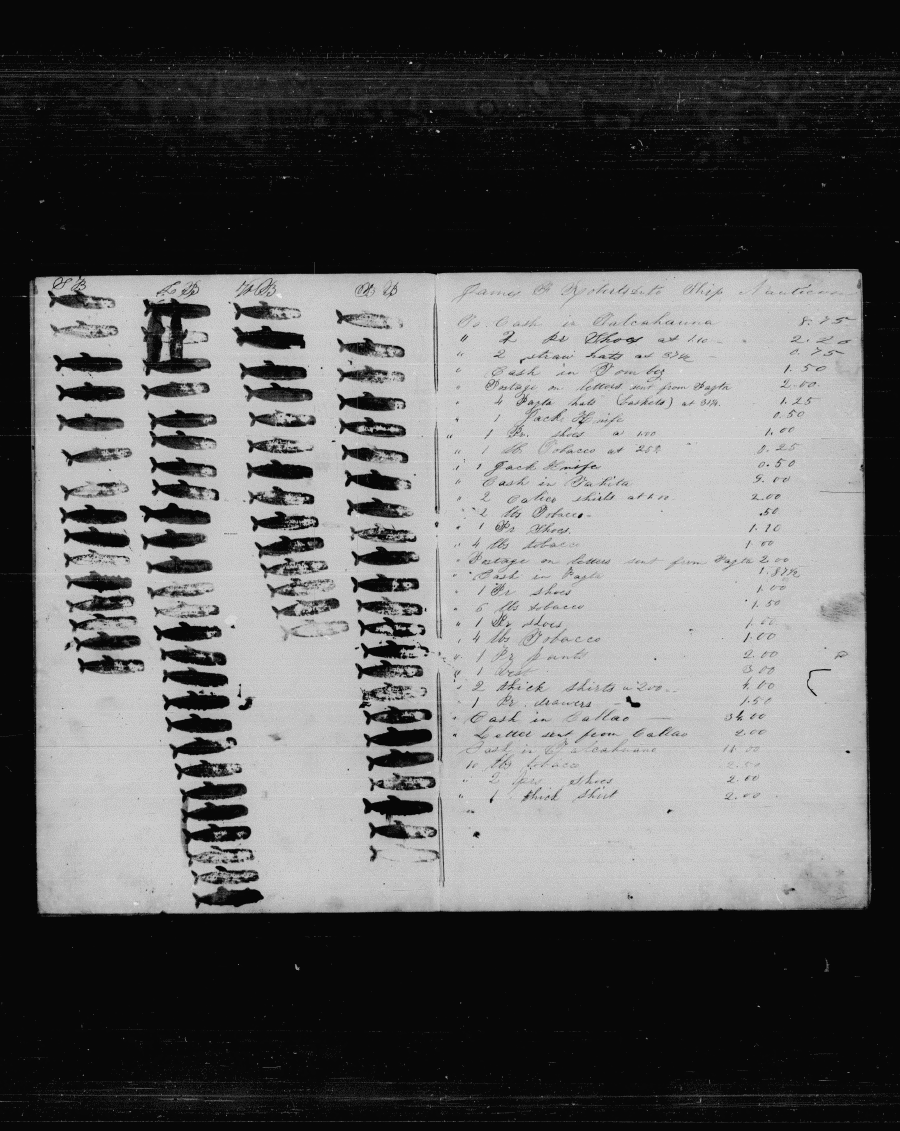 S B
L B
W B
B B
James F Roberts to Ship Nauticon
To Cash in Talcahauna 8.75
" 2 pr Shoes at 1.10 2.20
" 2 straw hats at 37½ 0.75
" Cash in Tombez 1.50
" Postage on letters sent from Payta 2.00
" 4 Payta hats (baskets) at 31¼ 1.25
" 1 Jack Knife 0.50
" 1 Pr. shoes a 1.00 1.00
" 1 lb Tobacco at 25c 0.25
" 1 Jack Knife 0.50
" Cash in 9.00
" 2 Calico shirts at 1.00 2.00
" 2 lbs Tobacco .50
" 1 Pr Shoes 1.10
" 4 lbs tobacco 1.00
" Postage on letters sent from Payta 2.00
" Cash in Payta 1.87½
" 1 Pr shoes 1.00
" 6 lbs tobacco 1.50
" 1 Pr shoes 1.00
" 4 lbs Tobacco 1.00
" 1 Pr pants 2.00
" 1 vest 3.00
" 2 thick shirts a 2.00 4.00
" 1 Pr. drawers 1.50
" Cash in Callao 34.00
" Letter sent from Callao 2.00
Cash in Talcahuano 11.00
10 lbs tobacco 2.50
" 2 prs shoes 2.00
" 1 thick shirt 2.00